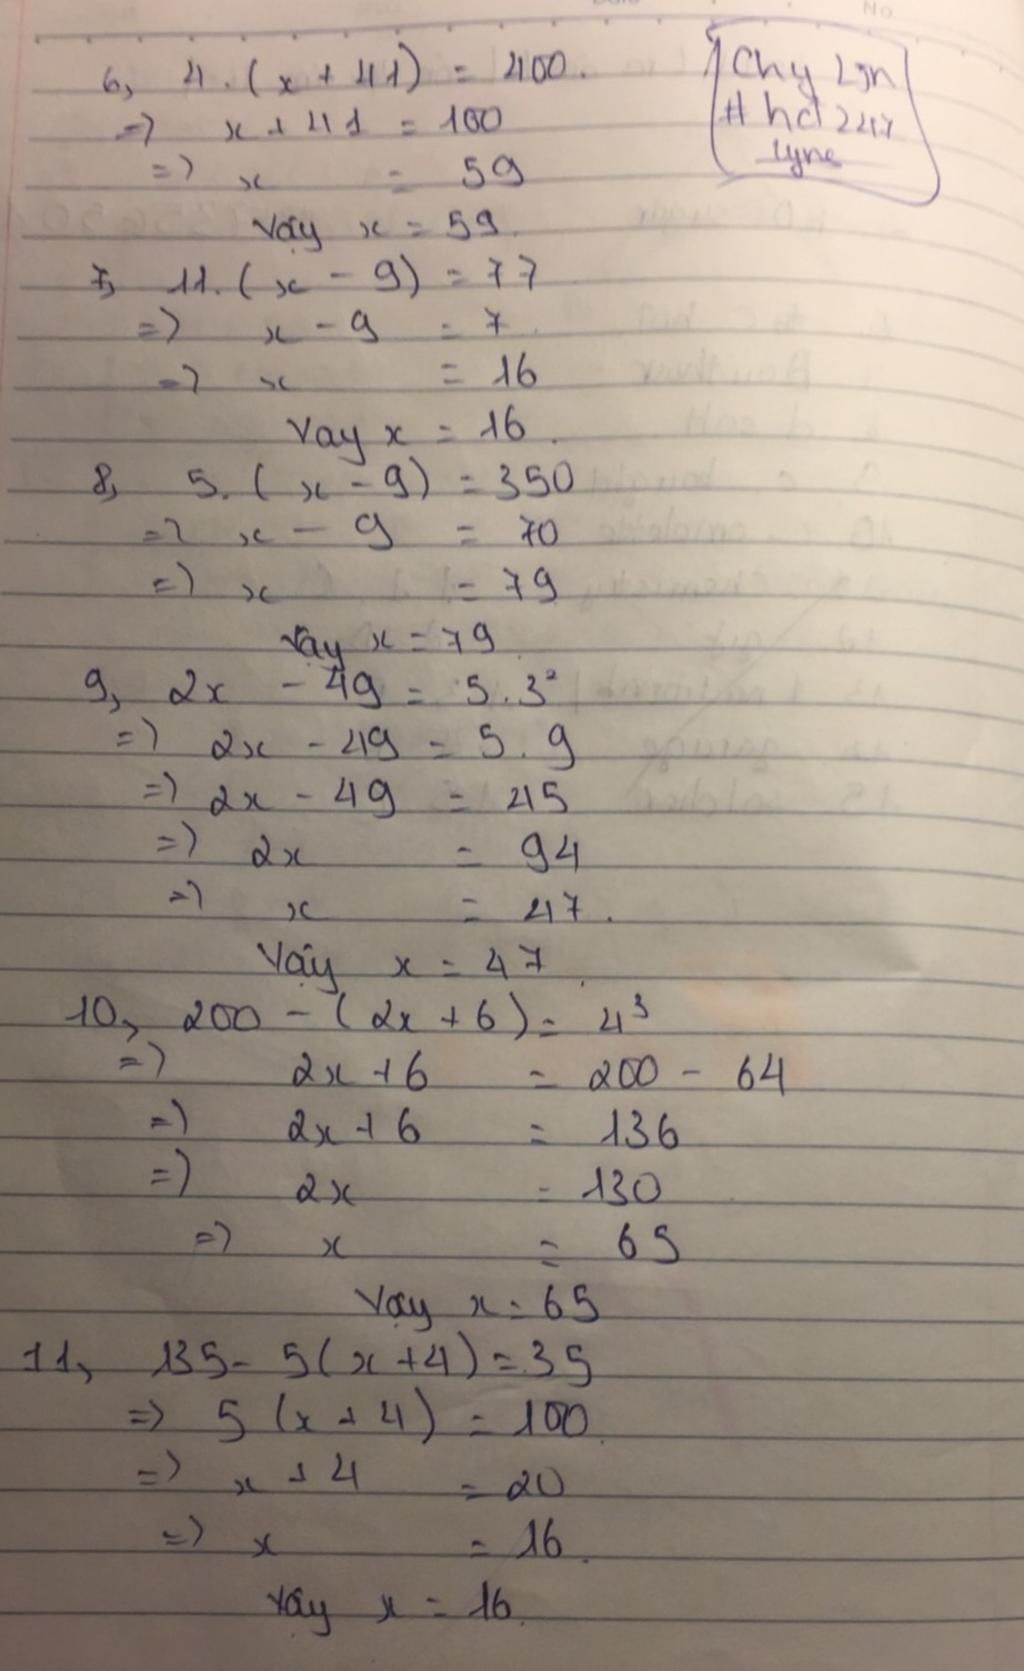 No
Chy Lyn
# hd247
lyne
6, 4.(x+41) = 400.
=> x+41 = 100
=> x = 59
Vậy x = 59.
7, 11.(x - 9) = 77
=> x - 9 = 7.
=> x = 16
Vay x = 16.
8, 5.(x - 9) = 350
=> x - 9 = 70
=> x = 79
Vậy x = 79
9, 2x - 49 = 5.3²
=> 2x - 49 = 5.9
=> 2x - 49 = 45
=> 2x = 94
=> x = 47.
Vậy x = 47.
10, 200 - (2x+6) = 4³
=> 2x+6 = 200 - 64
=> 2x+6 = 136
=> 2x = 130
=> x = 65
Vậy x = 65
11, 135- 5(x+4) = 35
=> 5(x+4) = 100.
=> x+4 = 20
=> x = 16.
Vậy x = 16.